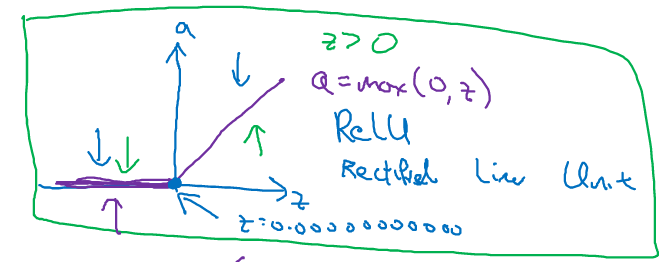 a
z > 0
a = max(0, z)
ReLU
Rectified Linear Unit
z
z = 0.00000000000